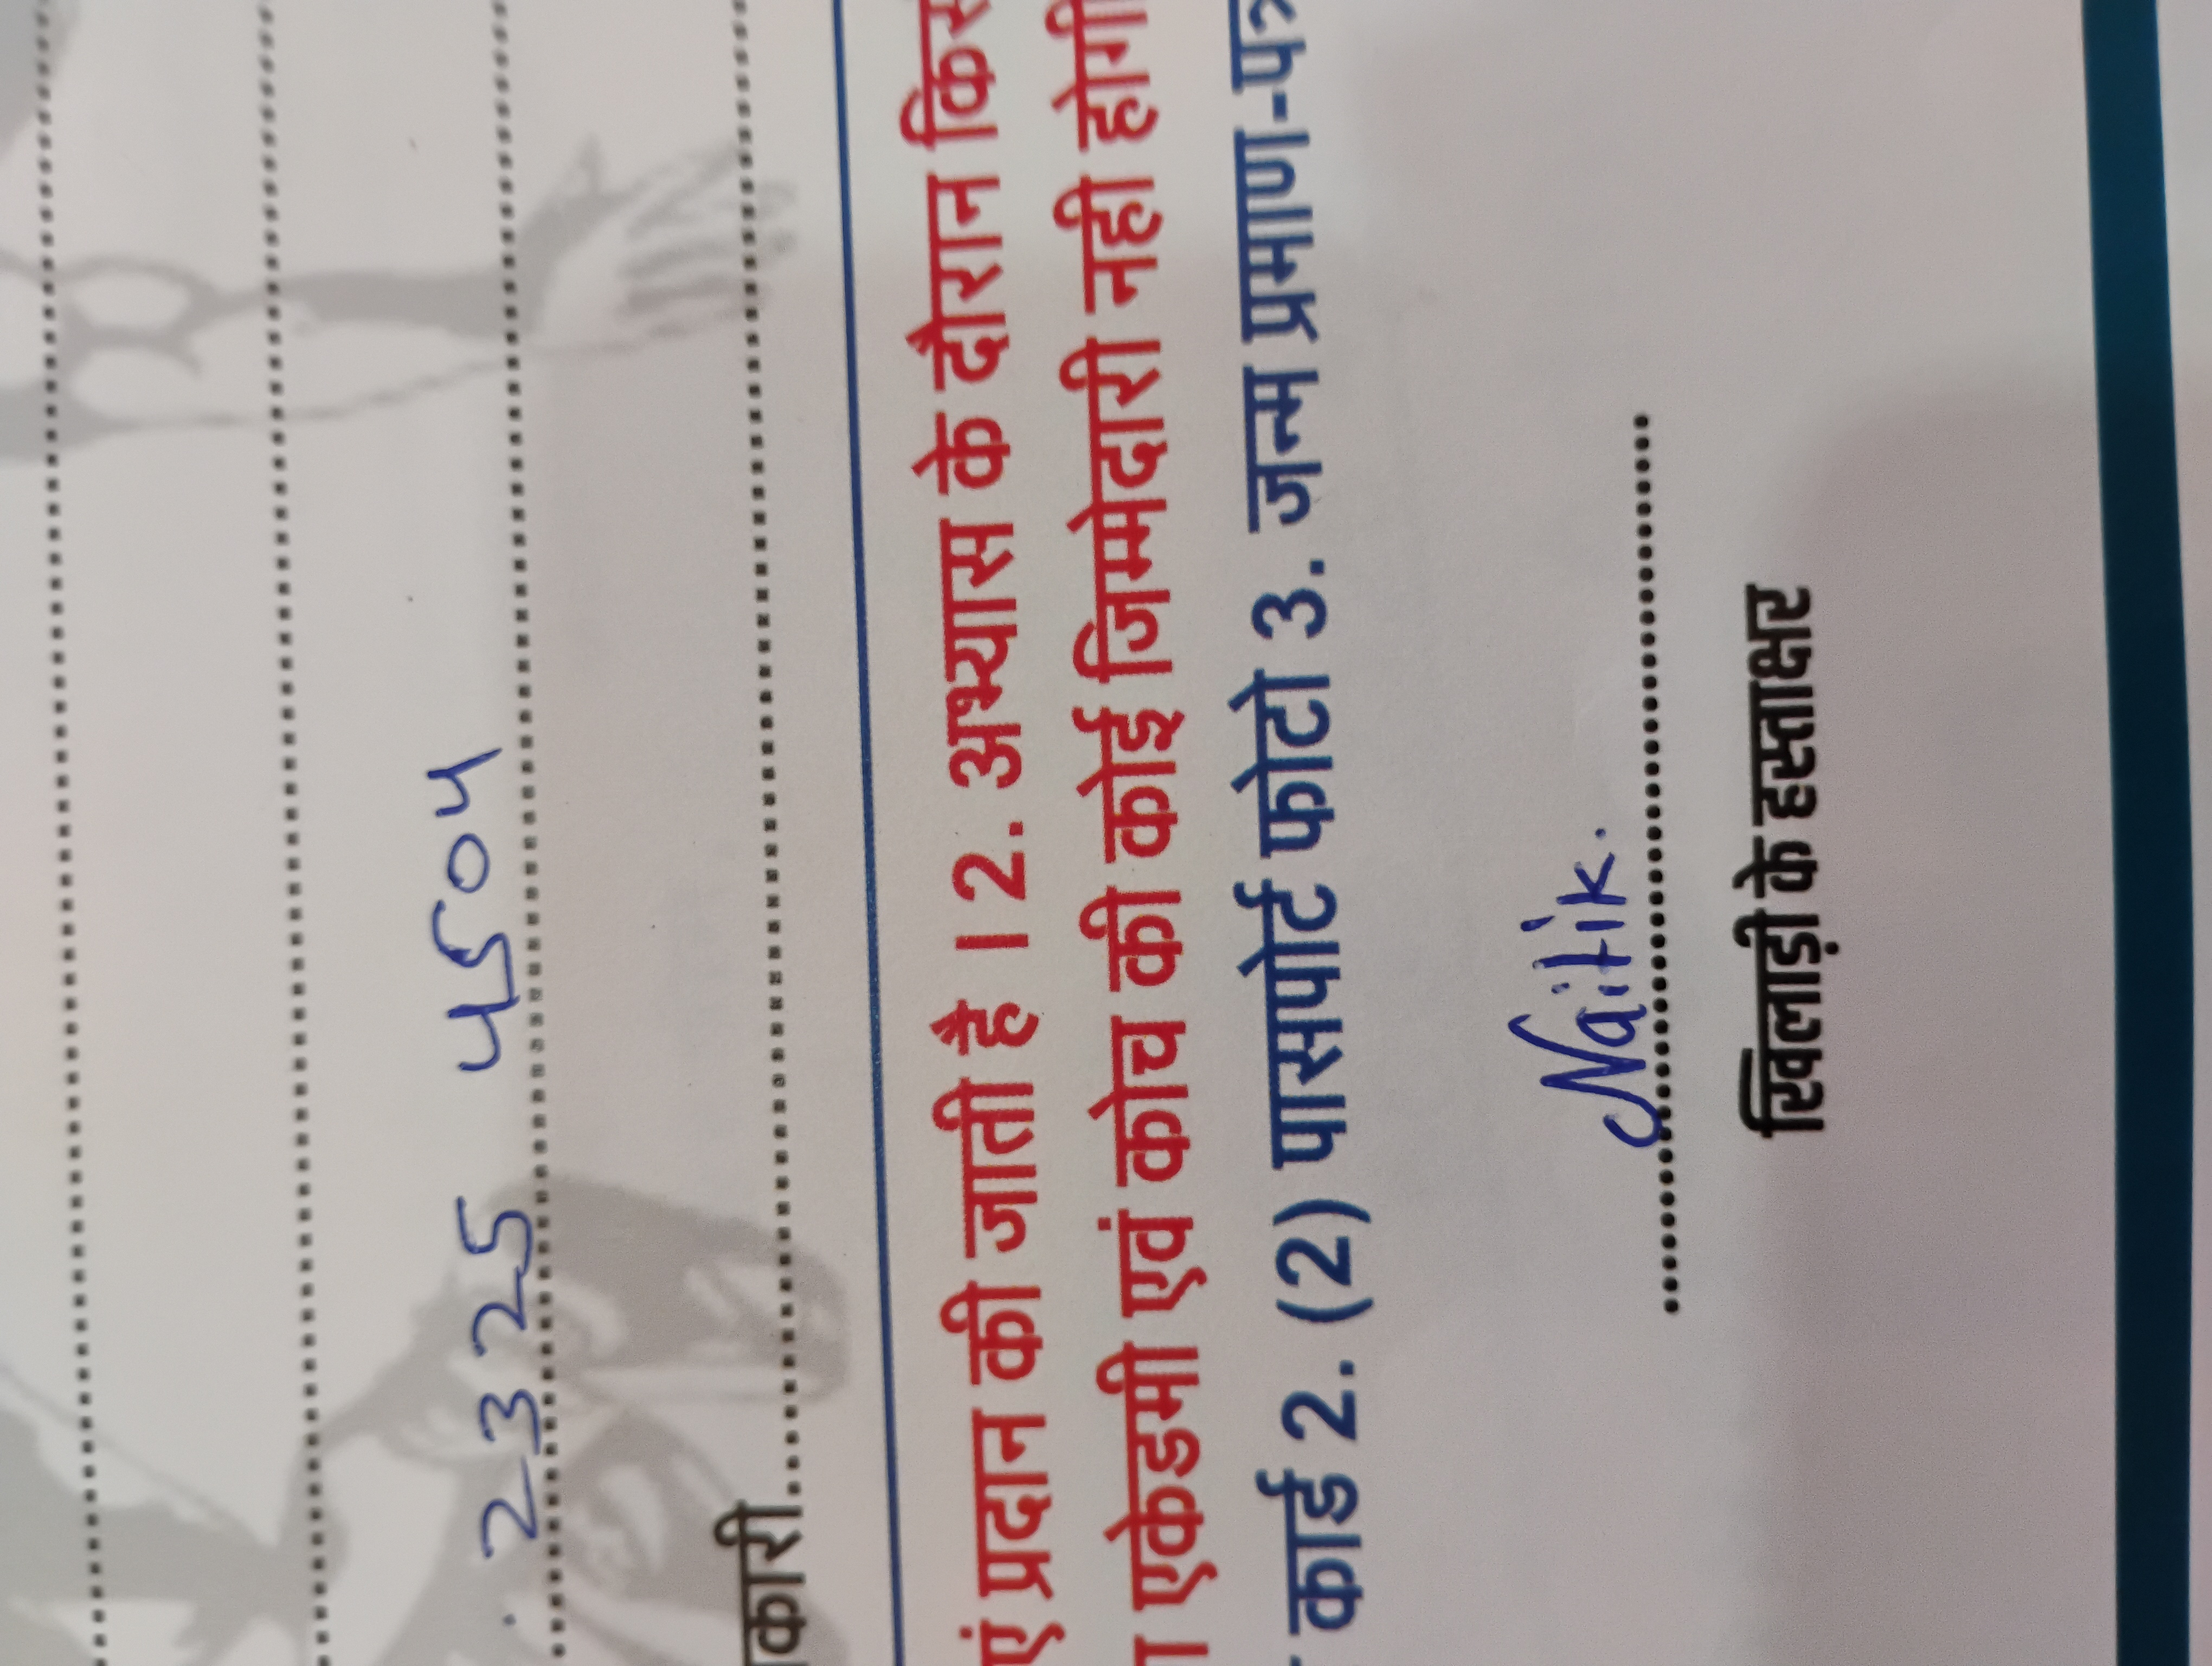 2325 4504
कारी
एं प्रदान की जाती है । 2. अभ्यास के दौरान किस
एकेडमी एवं कोच की कोई जिम्मेदारी नही होगी
कार्ड 2. (2) पासपोर्ट फोटो 3. जन्म प्रमाण-पत्र
Naitik.
खिलाड़ी के हस्ताक्षर